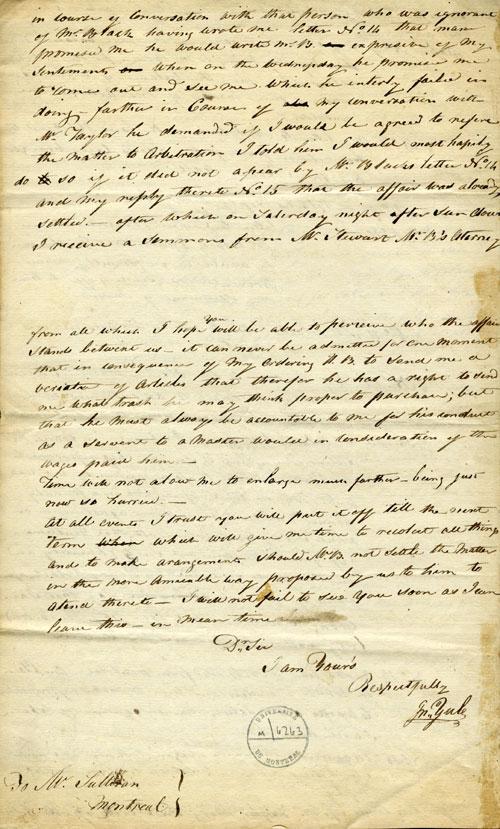 in course of Conversation with that person who was ignorant
of Mr. Black having wrote me letter No. 14 that man
promised me he would write Mr. B. expressive of my
Sentements when on the Wednesday he promise me
to Come out and see me which he interly failed in
doing – farther in Course of my conversation with
Mr. Taylor he demanded if I would be agreed to refere
the matter to Arbetration I told him I would most hapily
do so if it did not apear by Mr. Blacks letter No. 14
and my reply thereto No. 15 that the affair was already
settled. – after which on Saterday night after Sun down
I receive a Summons from Mr. Stewart Mr. B's Atorney
from all which I hope you will be able to perceive who the affair
Stands between us – it can never be admitted for one moment
that in consequence of my ordering H. B. to Send me a
of Articles that therefor he has a right to send
me what trash he may think proper to purchase; but
that he must always be accountable to me for his conduct
as a Servent to a Master would in Consideration of the
wages paid him –
Time will not alow me to enlarge much farther – being just
now so hurried. –
At all events I trust you will put it off till the next
Term which will give me time to recolect all things
and to make arangements should Mr. B. not Settle the Matter
in the more Amicable way proposed by us to him to
atend thereto – I will not fail to see you soon as I can
leave this – in mean time
Dr. Sir
I am Your's
Respectfully
Jn. Yule
UNIVERSITÉ
M 6263
DE MONTREAL
To Mr. Sullivan
Montreal